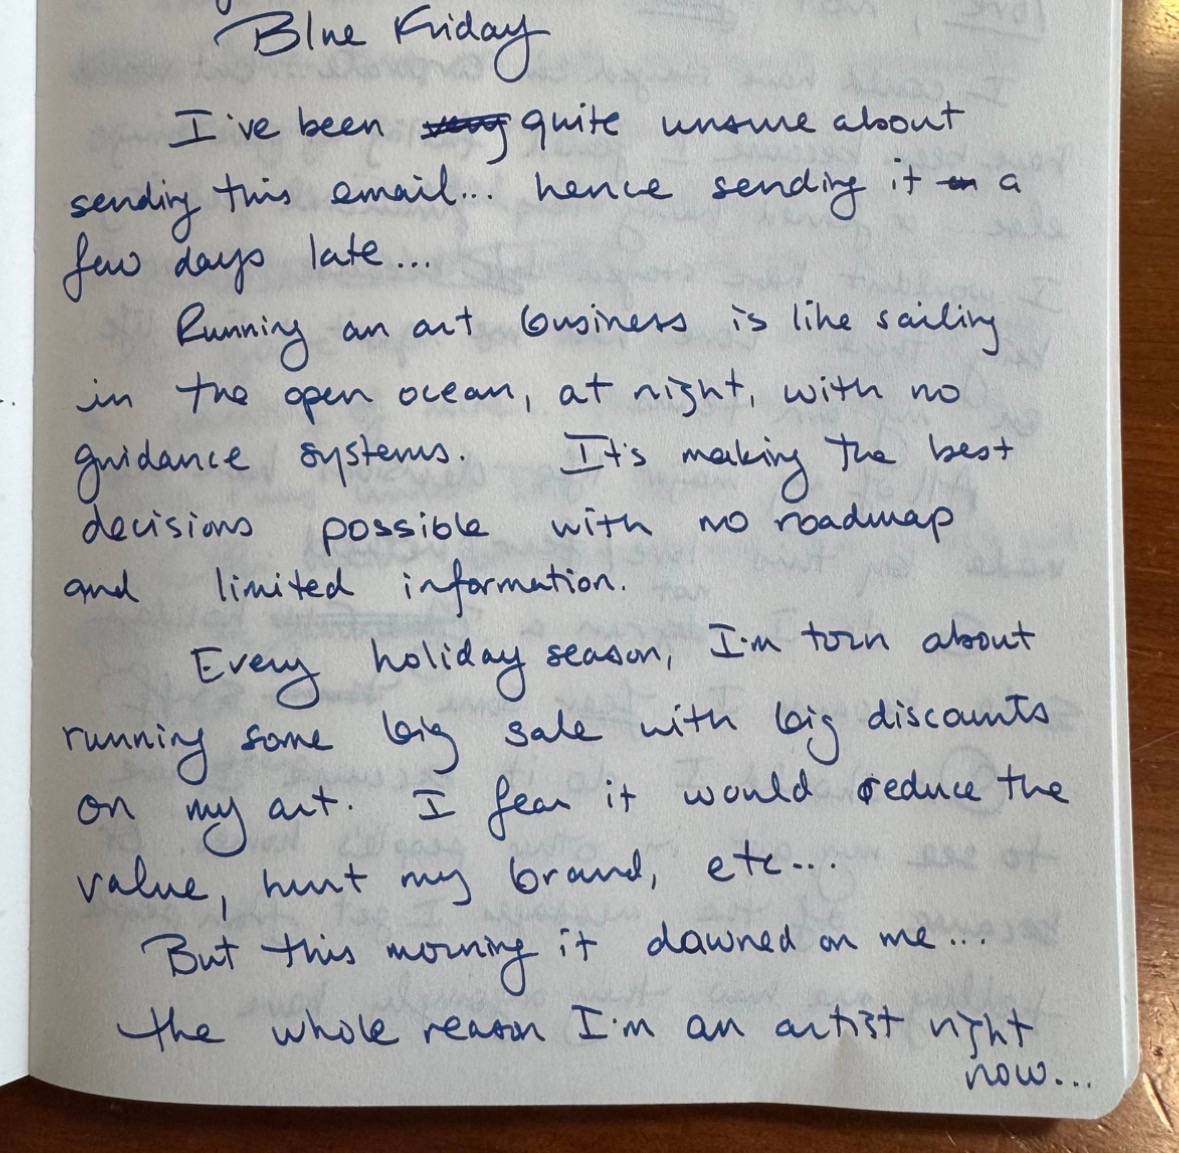 Blue Friday
I've been very quite unsure about
sending this email... hence sending it a
few days late...
Running an art business is like sailing
in the open ocean, at night, with no
guidance systems. It's making the best
decisions possible with no roadmap
and limited information.
Every holiday season, I'm torn about
running some big sale with big discounts
on my art. I fear it would reduce the
value, hurt my brand, etc...
But this morning it dawned on me...
the whole reason I'm an artist right
now...